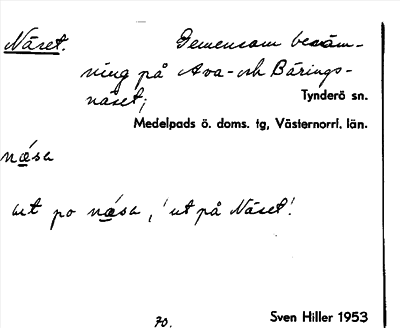 Näset. Gemensam benäm-
ning på Ava- och Bärings-
näset;
Tynderö sn.
Medelpads ö. doms. tg, Västernorrl. län.
näsa
ut po näsa, 'ut på Näset'.
70.
Sven Hiller 1953